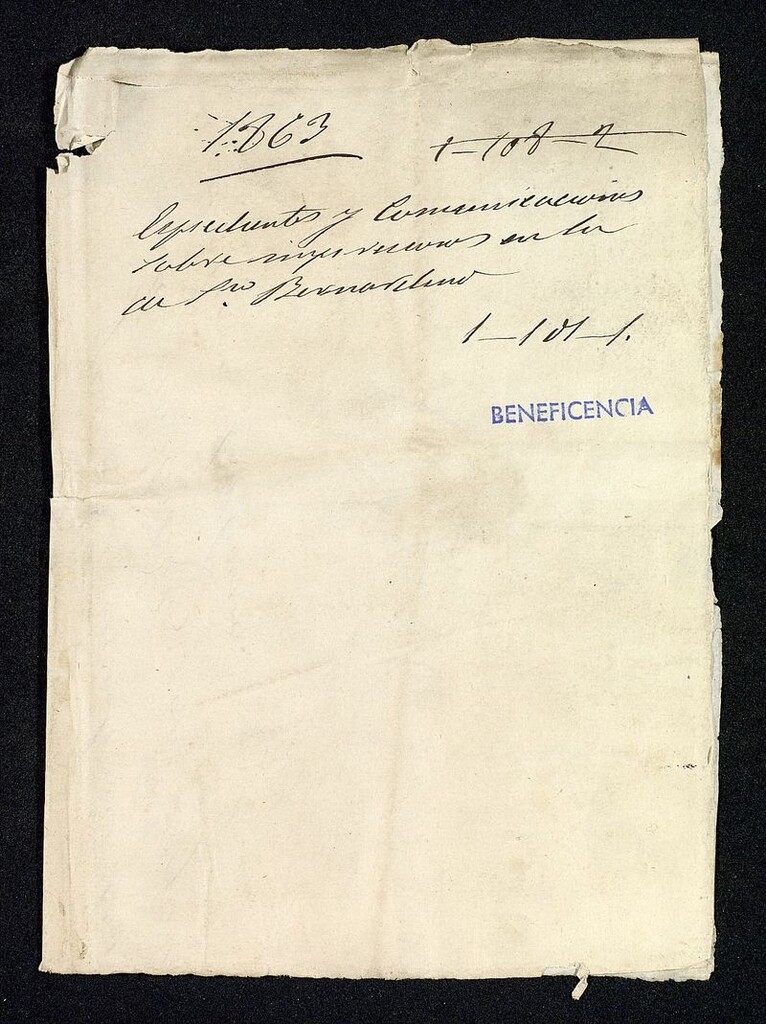 1863
1-108-2
Expedientes y Comunicaciones
sobre impresiones en la
de Sn. Bernardino
1-101-1.
BENEFICENCIA